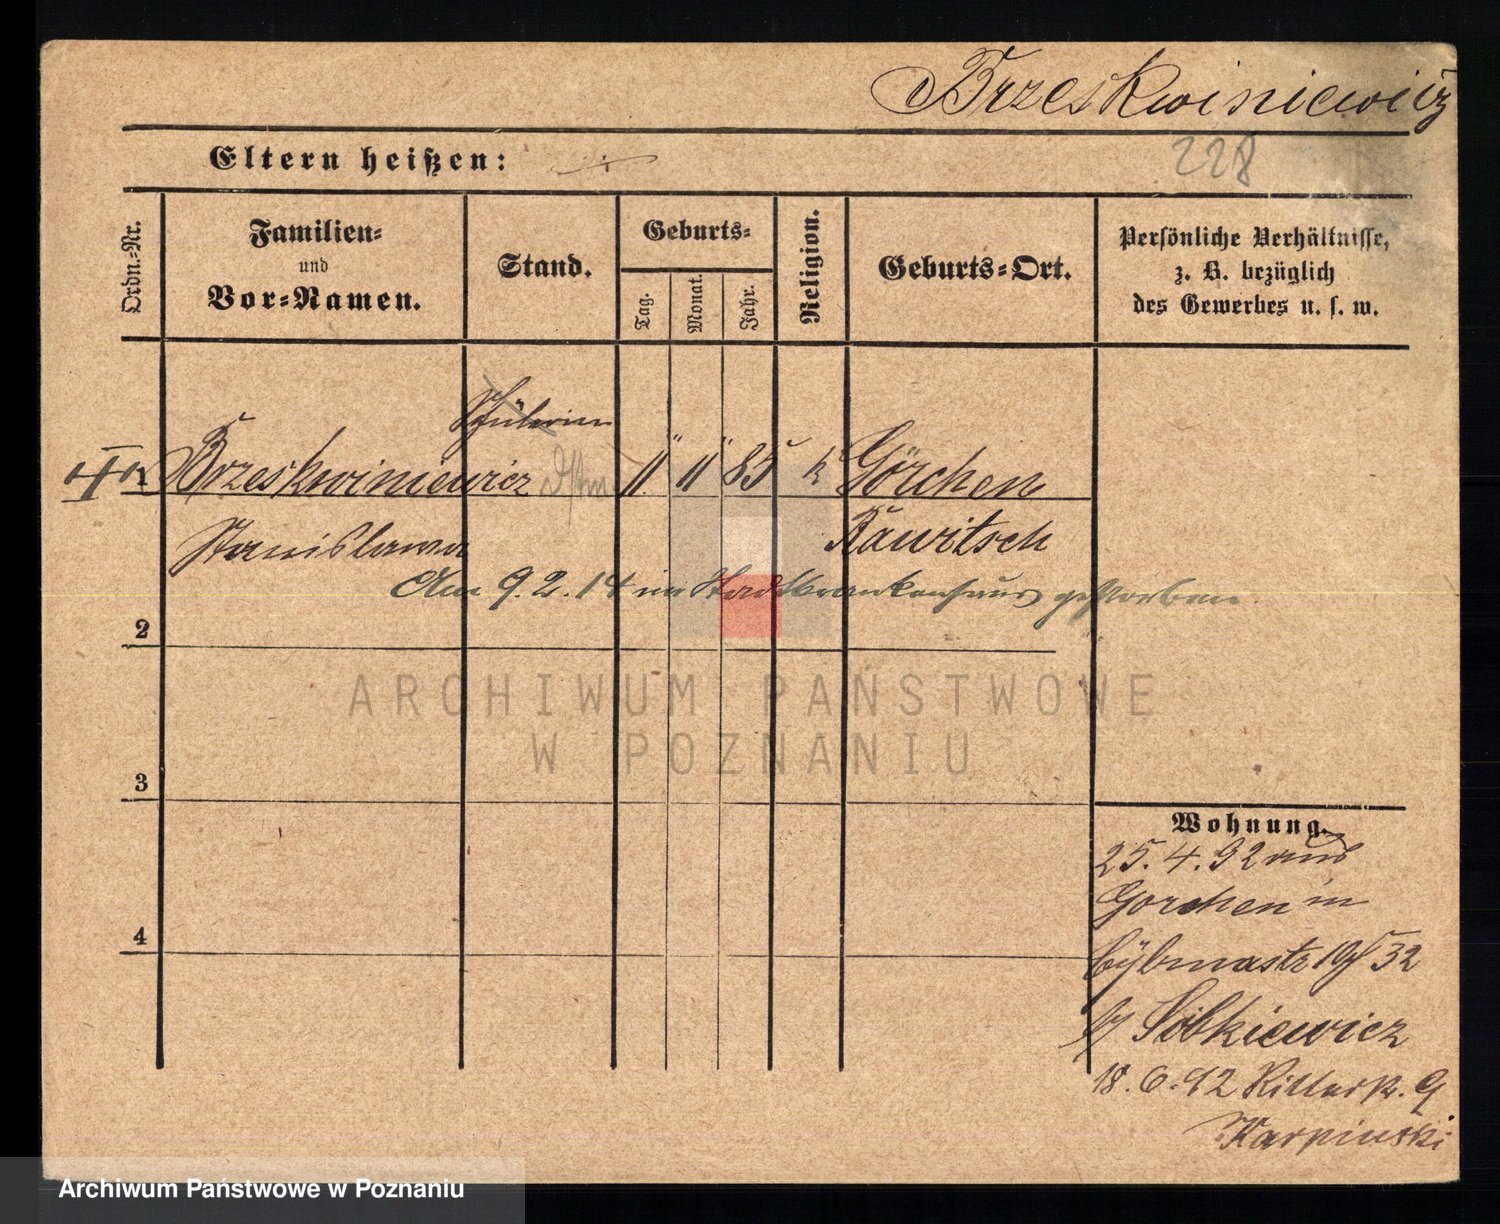 Brzeskwiniewicz
228
Eltern heißen:
Ordn.-Nr.
Familien-
und
Vor-Namen.
Stand.
Geburts-
Tag.
Monat.
Jahr.
Religion.
Geburts-Ort.
Persönliche Verhältnisse,
z. B. bezüglich
des Gewerbes u. s. w.
Brzeskwiniewicz 11 11 85 k Görchen
Stanislawa Rawitsch
Am 9.2.14 im Stadtkrankenhaus gestorben.
2
3
4
Wohnung.
25.4.92 aus
Gorchen in
32
Sobkiewicz
18.6.92 Ritterstr. 9
Karpinski
ARCHIWUM PAŃSTWOWE
W POZNANIU
Archiwum Państwowe w Poznaniu